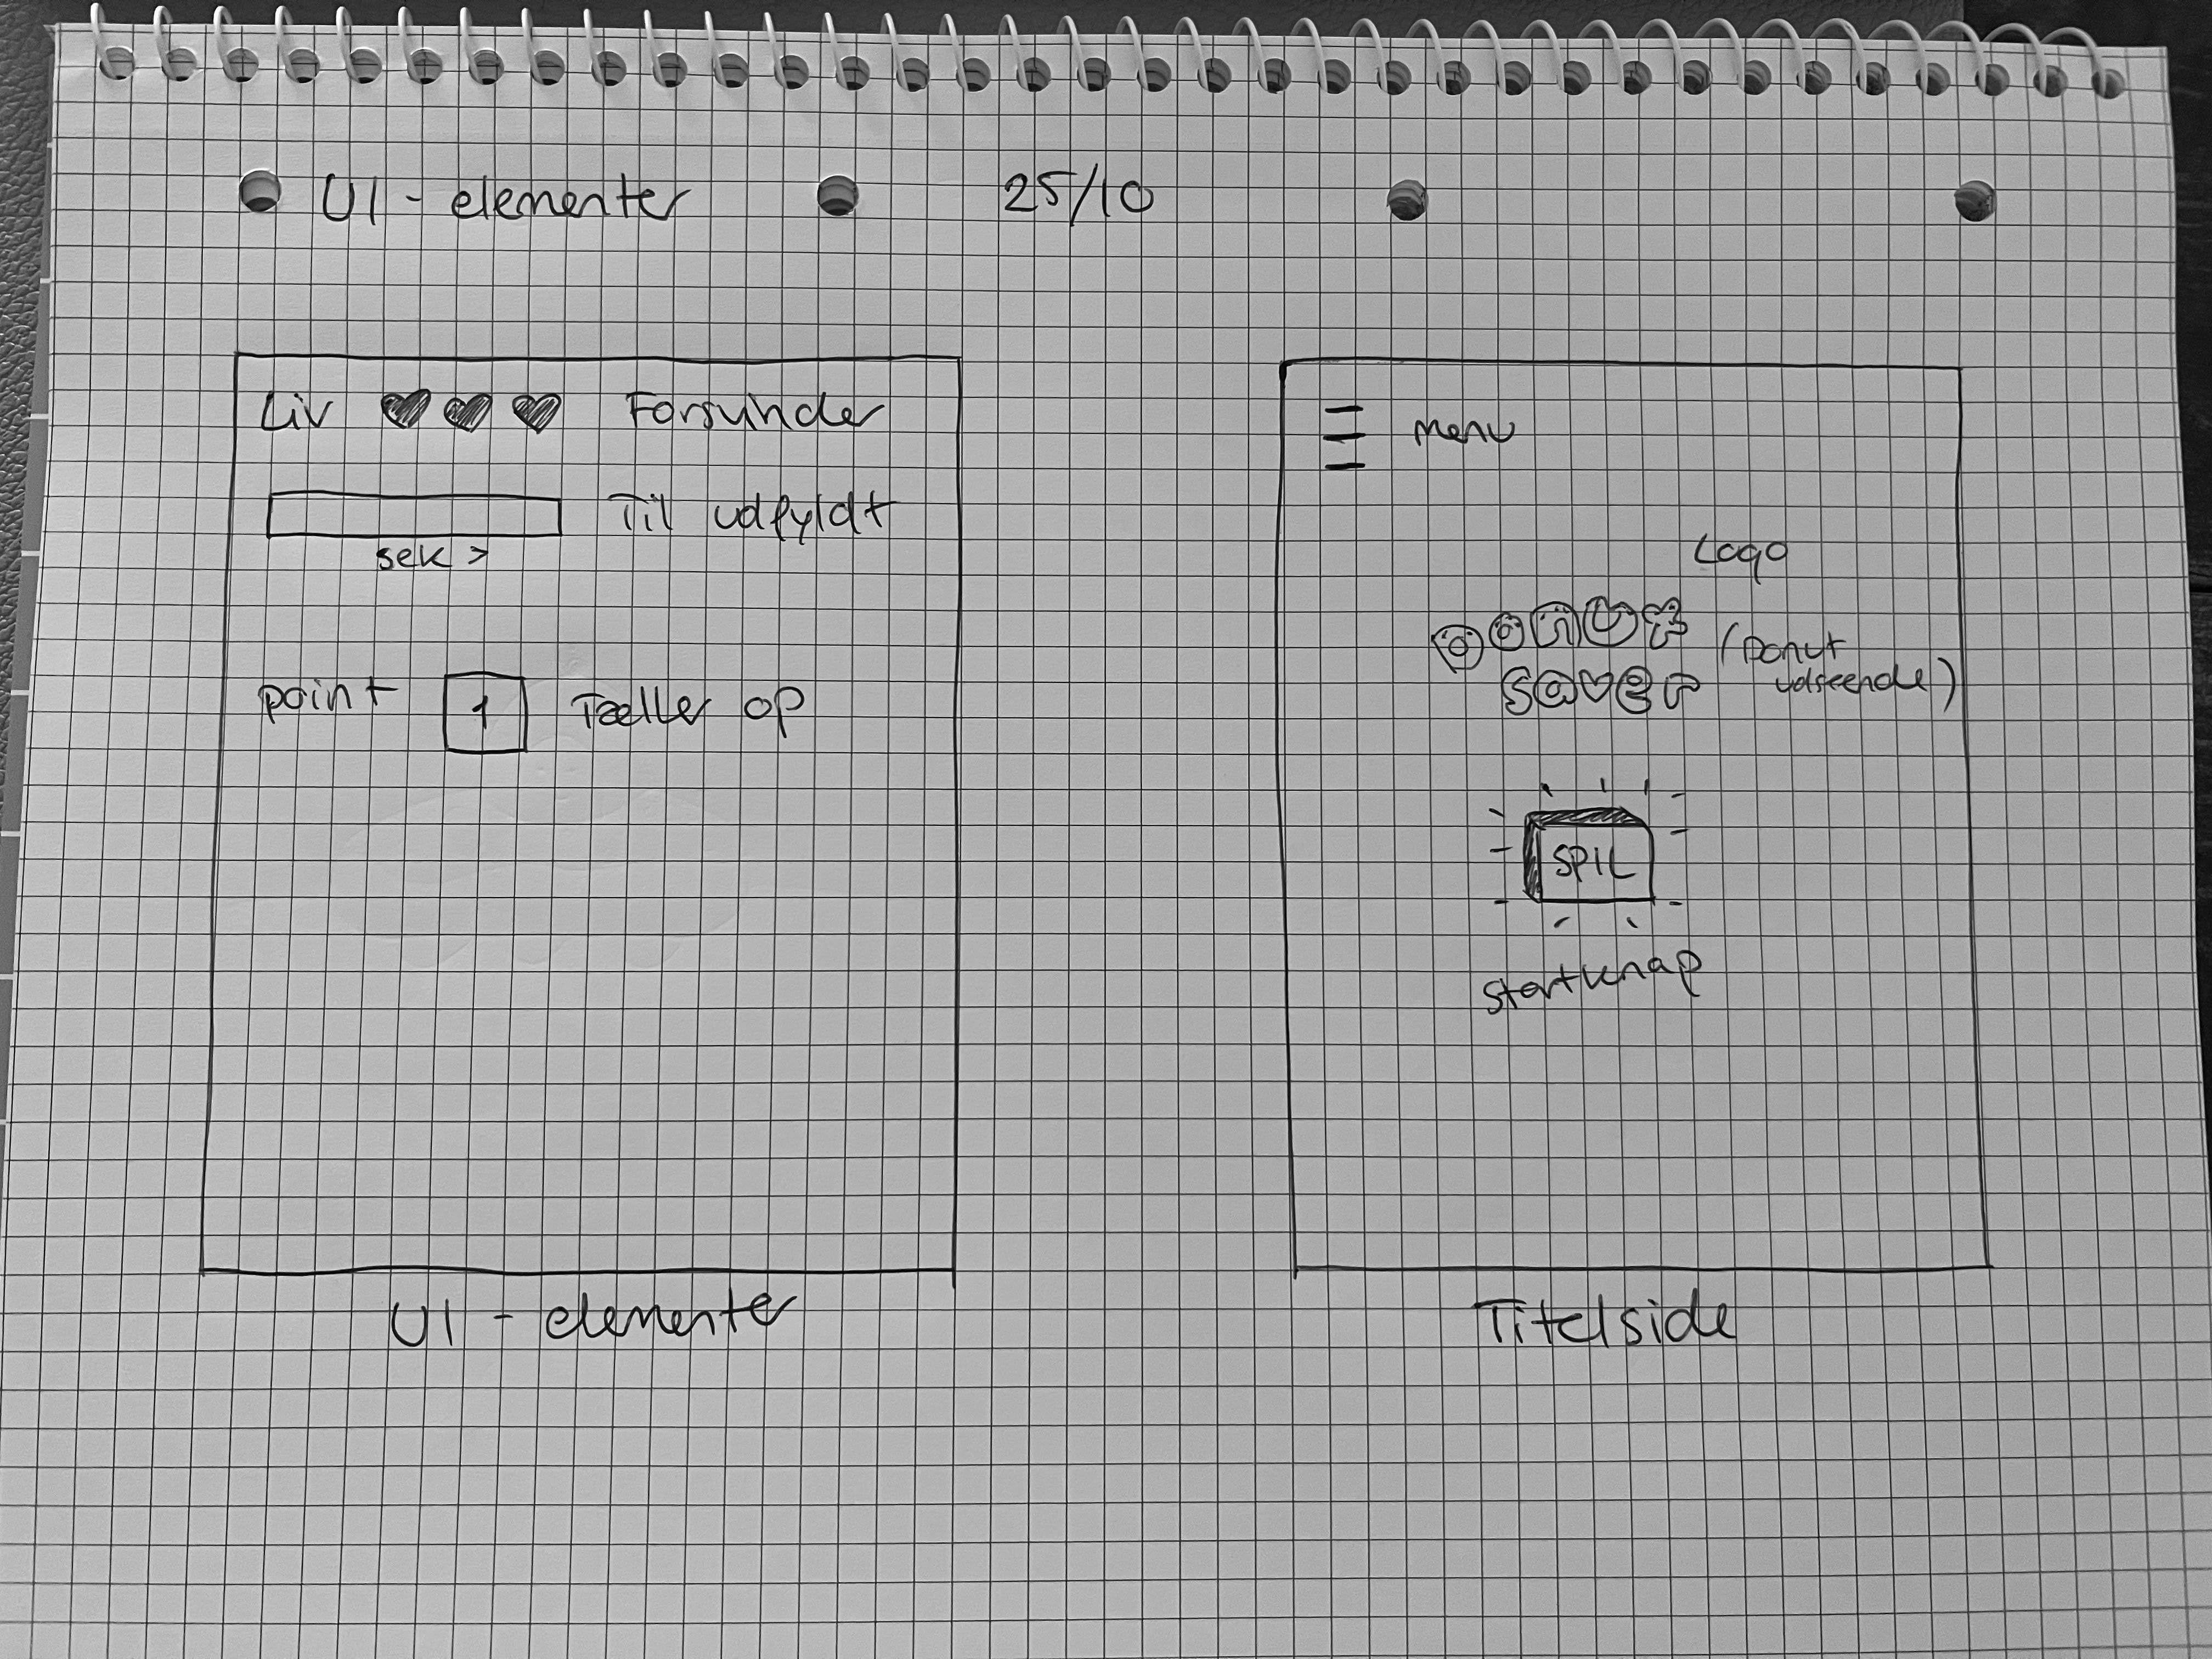 UI - elementer 25/10
Liv Forsvinder
Til udfyldt
sek >
point 1 Tæller op
UI - elementer
menu
Logo
DONUT
(Donut
saver
udseende)
SPIL
startknap
Titelside